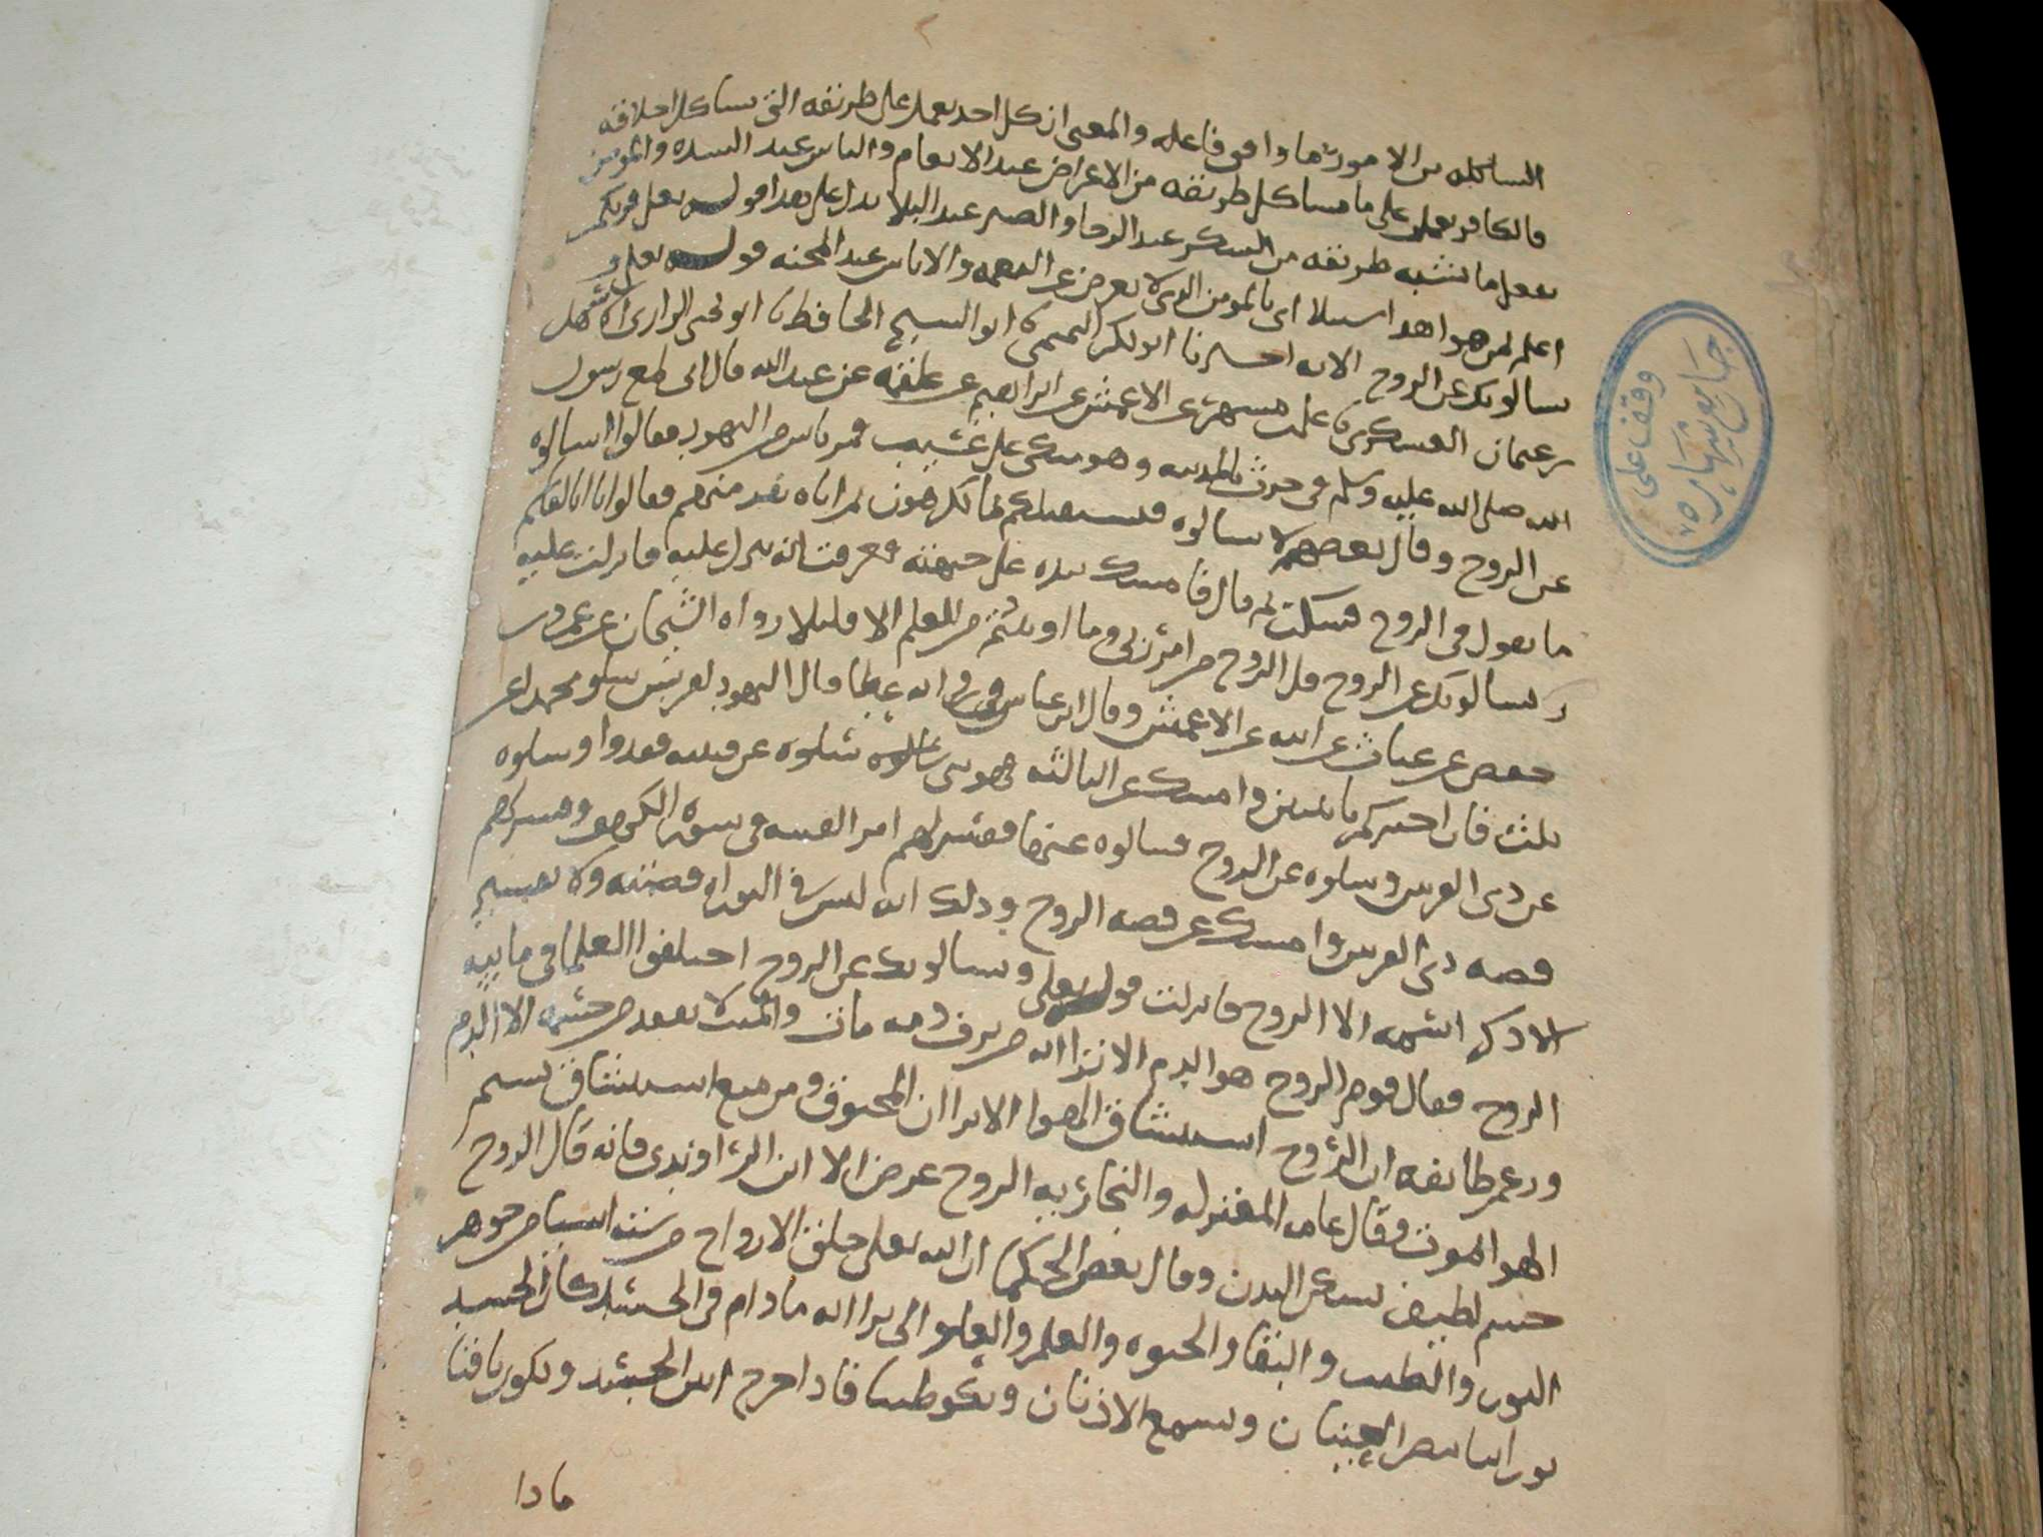 الشاكلة من الامور ما وافق فاعله والمعنى ان كل احد يعمل على طريقته التى تشاكل اخلاقه
فالكافر يعمل على ما يشاكل طريقته من الاعراض عند الانعام والياس عند الشدة والمومن
يفعل ما يشبه طريقته من الشكر عند الرخا والصبر عند البلا يدل على هذا قوله تعلى فربكم
اعلم بمن هو اهدا سبيلا اى بالمومن الذى لا يعرض عن النعمه والاياس عند المحنه قوله تعلى و
يسالونك عن الروح الايه اخبرنا ابو بكر التميمى انا ابو الشيخ الحافظ نا ابو يحيى الرازى نا سهل
بن عثمان العسكرى نا على بن مسهر عن الاعمش عن ابراهيم عن علقمه عن عبد الله قال انى مع رسول
الله صلى الله عليه وسلم فى حرث بالمدينه وهو متكى على عسيب فمر ناس من اليهود فقالوا اسالوه
عن الروح وقال بعضهم لا تسالوه فيستقبلكم بما تكرهون فاتاه نفر منهم فقالوا يا ابا القاسم
ما تقول فى الروح فسكت ثم قال فامسك بيده على جبهته فعرفت انه ينزل عليه فانزلت عليه
ويسالونك عن الروح قل الروح من امر ربى وما اوتيتم من العلم الا قليلا رواه الشيخان عن عمر بن
حفص عن غياث عن ابيه عن الاعمش وقال ابن عباس فى روايه عطا قال اليهود لقريش سلو محمدا عن
ثلث فان اخبركم باثنتين وامسك عن الثالثه فهو نبى سلوه عن فتيه فقدوا وسلوه
عن ذى القرنين وسلوه عن الروح فسالوه عنها ففسر لهم امر الفتيه فى سوره الكهف وفسر لهم
قصه ذى القرنين وامسك عن قصه الروح وذلك انه ليس فى التوراه قصته ولا تفسير
الا ذكر اسمه الا الروح فانزلت قوله تعلى ويسالونك عن الروح اختلفوا العلما فى مايية
الروح فقال قوم الروح هو الدم الا ترا انه من نزف دمه مات والميت لا يفقد من جسمه الا الدم
وزعم طايفه ان الروح استنشاق الهوا الا ترا ان المخنوق ومن منع استنشاق نسيم
الهوا يموت وقال عامه المعتزله والنجاريه الروح عرض الا ابن الراوندى فانه قال الروح
جسم لطيف يسكن البدن وقال بعض الحكما ان الله تعلى خلق الارواح من سته اشيا من جوهر
النور والطيب والبقا والحيوه والعلم والعلو الا ترا انه ما دام فى الجسد كان الجسد
نورانيا يبصر العينان ويسمع الاذنان ويكون طيبا فاذا خرج انتن الجسد ويكون باقيا
فاذا
وقف على
جامع شهارة